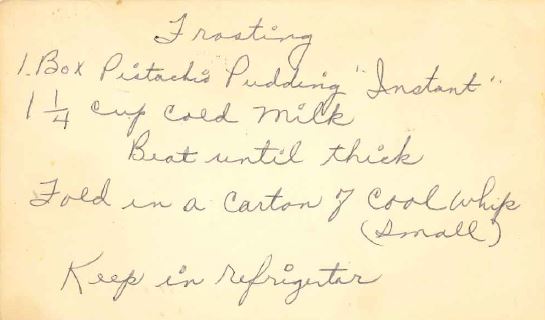 Frosting
1 Box Pistachio Pudding "Instant"
1 1/4 cup cold milk
Beat until thick
Fold in a carton of Cool Whip
(small)
Keep in refrigertar